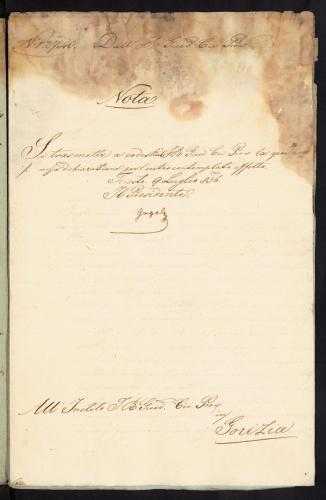 Dall' I. R. Giud. Civ. Prov.
Nota
Si trasmette a codesto I. R. Giud. Civ. Prov. la
dichiarazione per l'entrocontemplato effetto.
Trieste 9 Luglio
Il Presidente
All' Inclito I. R. Giud. Civ. Prov.
in
Gorizia